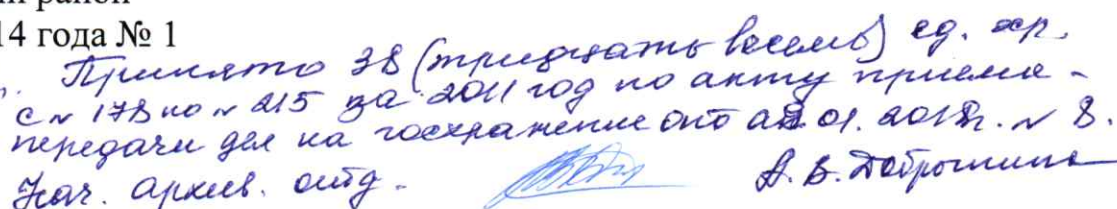 район
14 года № 1
Принято 38 (тридцать восемь) ед. хр.
с № 178 по № 215 за 2011 год по акту приема-
передачи дел на госхранение от 01. № 8.
Нач. архив. отд. А. В.